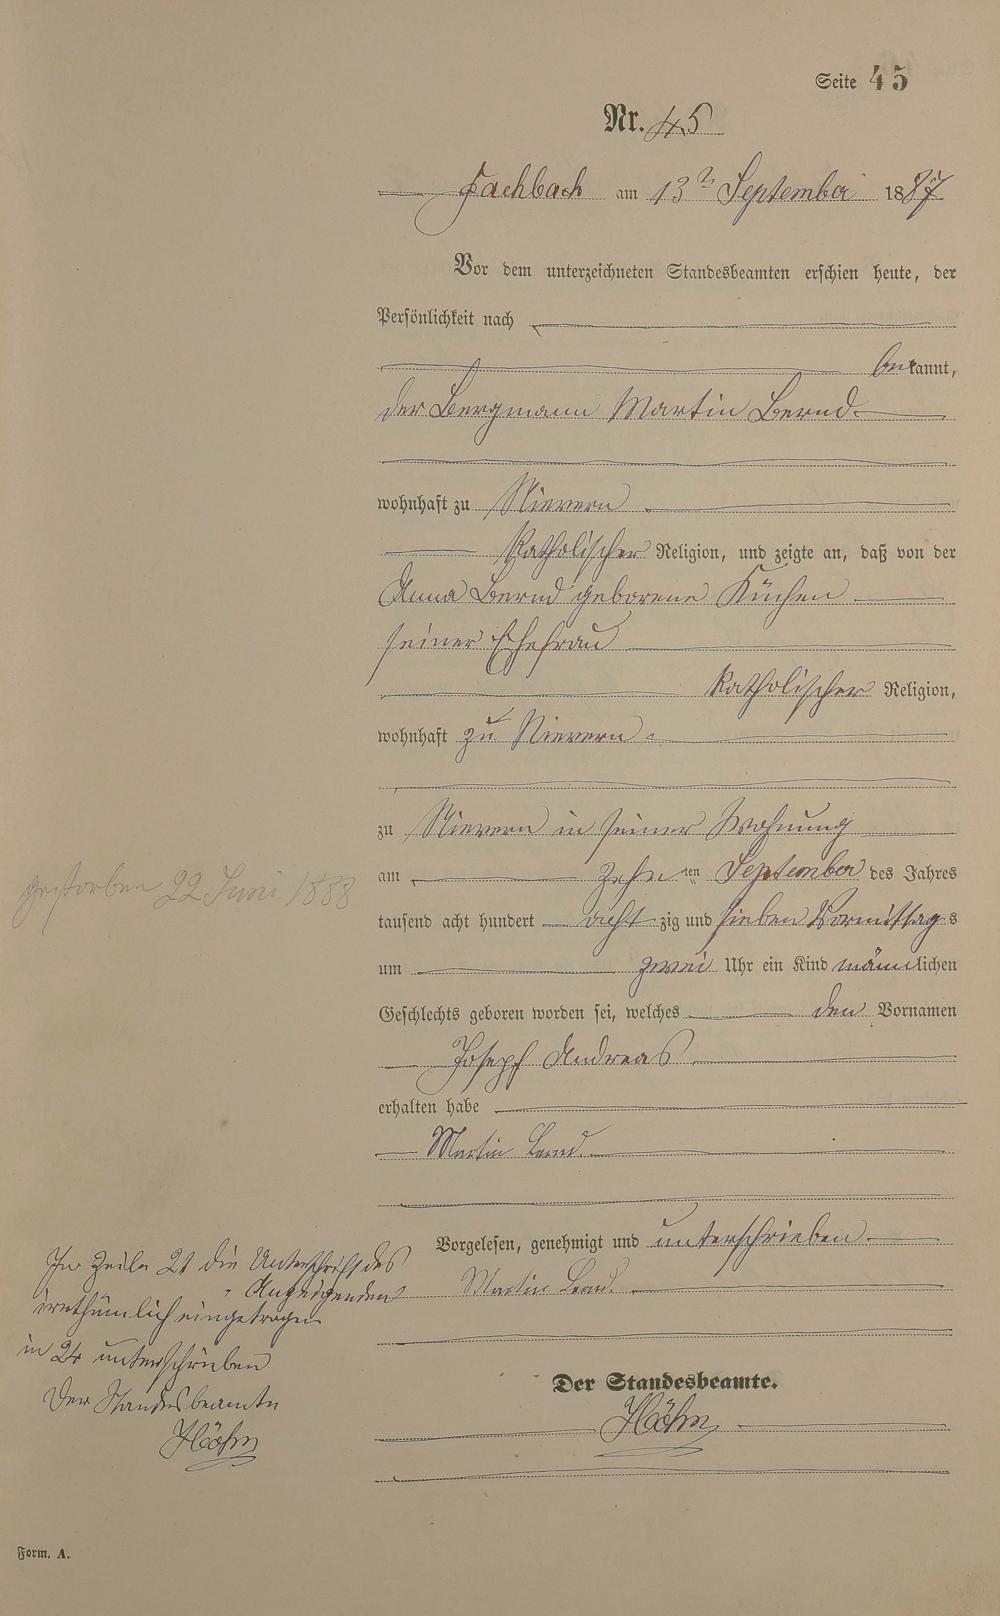 Seite 45
Nr. 45
Fachbach am 13ten September 1887
Vor dem unterzeichneten Standesbeamten erschien heute, der
Persönlichkeit nach
bekannt,
der Bergmann Martin Bernd
wohnhaft zu Nievern
katholischer Religion, und zeigte an, daß von der
Anna Bernd geborene Küchen
seiner Ehefrau
katholischer Religion,
wohnhaft zu Nievern
zu Nievern in seiner Wohnung
am zehnten September des Jahres
tausend acht hundert achtzig und sieben Vormittags
um zwei Uhr ein Kind männlichen
Geschlechts geboren worden sei, welches den Vornamen
Joseph Andreas
erhalten habe
Martin Bernd.
Vorgelesen, genehmigt und unterschrieben
Martin Bernd.
Der Standesbeamte.
Höhn
gestorben 22 Juni 1888
In Zeile 21 die Unterschrift des
Anzeigenden
irrthümlich eingetragen
in 24 unterschrieben
Der Standesbeamte
Höhn
Form. A.